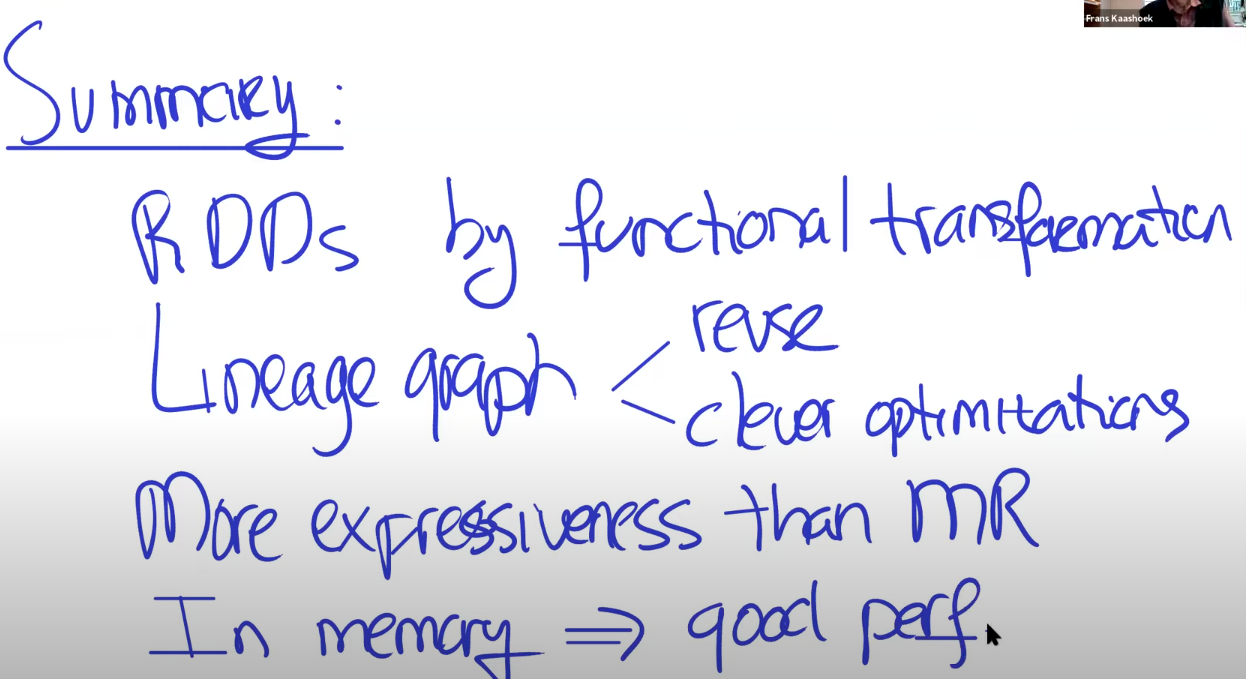 Frans Kaashoek
Summary:
RDDs by functional transformation
Lineage graph < reuse
clever optimizations
More expressiveness than MR
In memory => good perf.